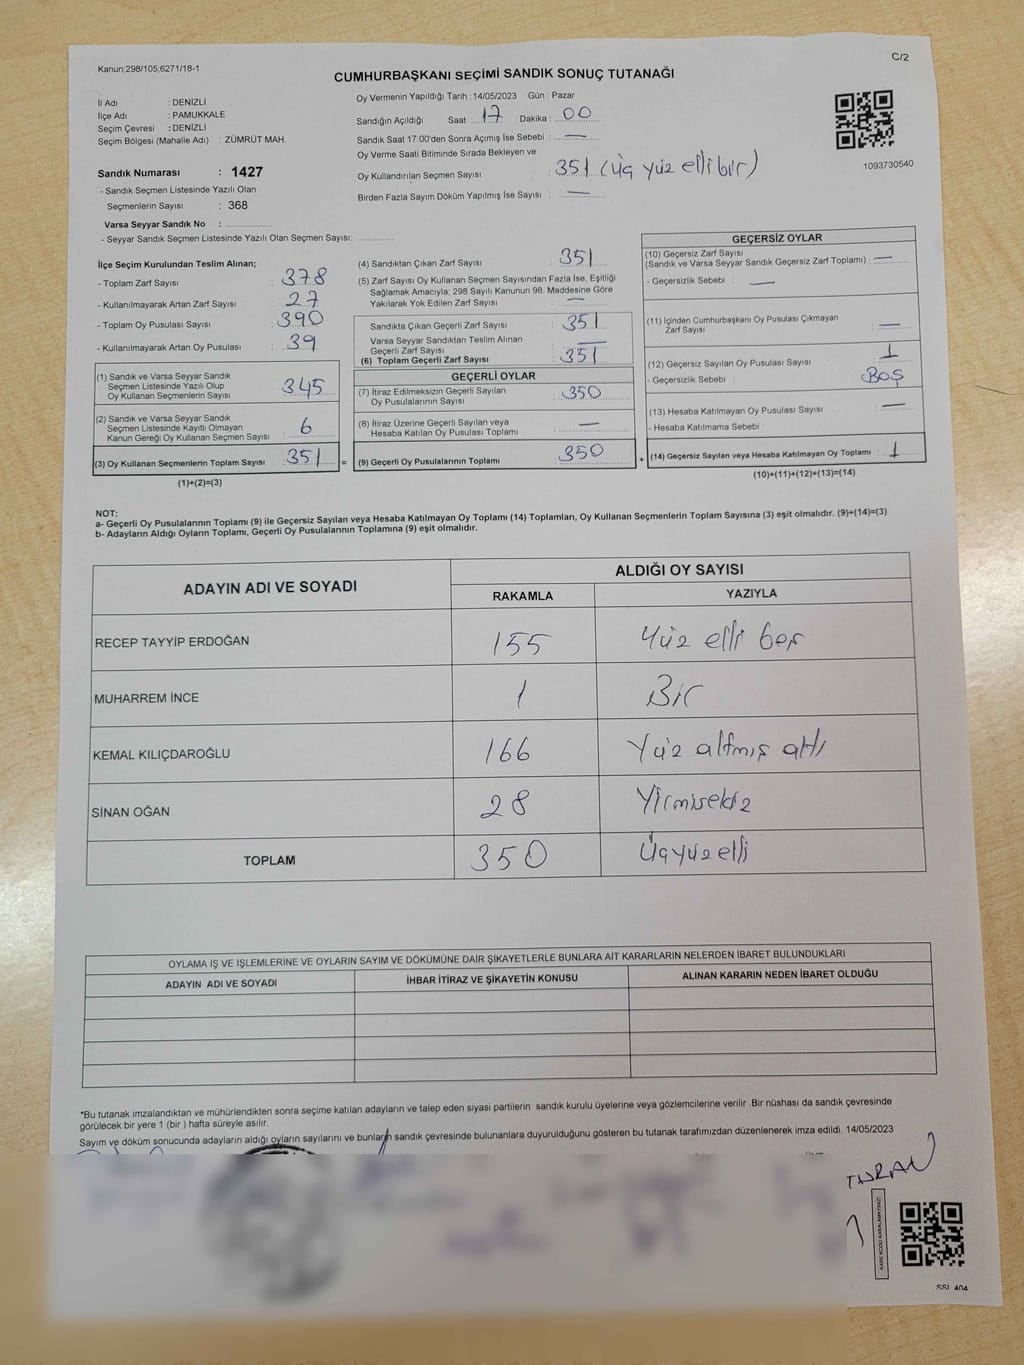 Kanun;298/105;6271/18-1
C/2
CUMHURBAŞKANI SEÇİMİ SANDIK SONUÇ TUTANAĞI
İl Adı : DENİZLİ
İlçe Adı : PAMUKKALE
Seçim Çevresi : DENİZLİ
Seçim Bölgesi (Mahalle Adı) : ZÜMRÜT MAH.
Sandık Numarası : 1427
- Sandık Seçmen Listesinde Yazılı Olan
Seçmenlerin Sayısı : 368
Varsa Seyyar Sandık No : ....................
- Seyyar Sandık Seçmen Listesinde Yazılı Olan Seçmen Sayısı: ...............
Oy Vermenin Yapıldığı Tarih :14/05/2023 Gün : Pazar
Sandığın Açıldığı Saat : 17 Dakika : 00
Sandık Saat 17:00'den Sonra Açımış İse Sebebi : —
Oy Verme Saati Bitiminde Sırada Bekleyen ve
Oy Kullandırılan Seçmen Sayısı : 351 (Üç yüz elli bir)
Birden Fazla Sayım Döküm Yapılmış İse Sayısı : —
1093730540
İlçe Seçim Kurulundan Teslim Alınan;
- Toplam Zarf Sayısı : 378
- Kullanılmayarak Artan Zarf Sayısı : 27
- Toplam Oy Pusulası Sayısı : 390
- Kullanılmayarak Artan Oy Pusulası : 39
(1) Sandık ve Varsa Seyyar Sandık
Seçmen Listesinde Yazılı Olup
Oy Kullanan Seçmenlerin Sayısı : 345
(2) Sandık ve Varsa Seyyar Sandık
Seçmen Listesinde Kayıtlı Olmayan
Kanun Gereği Oy Kullanan Seçmen Sayısı : 6
(3) Oy Kullanan Seçmenlerin Toplam Sayısı : 351 =
(1)+(2)=(3)
(4) Sandıktan Çıkan Zarf Sayısı : 351
(5) Zarf Sayısı Oy Kullanan Seçmen Sayısından Fazla İse, Eşitliği
Sağlamak Amacıyla; 298 Sayılı Kanunun 98. Maddesine Göre
Yakılarak Yok Edilen Zarf Sayısı : —
Sandıkta Çıkan Geçerli Zarf Sayısı : 351
Varsa Seyyar Sandıktan Teslim Alınan
Geçerli Zarf Sayısı : —
(6) Toplam Geçerli Zarf Sayısı : 351
GEÇERLİ OYLAR
(7) İtiraz Edilmeksizin Geçerli Sayılan
Oy Pusulalarının Sayısı : 350
(8) İtiraz Üzerine Geçerli Sayılan veya
Hesaba Katılan Oy Pusulası Toplamı : —
(9) Geçerli Oy Pusulalarının Toplamı : 350 +
GEÇERSİZ OYLAR
(10) Geçersiz Zarf Sayısı
(Sandık ve Varsa Seyyar Sandık Geçersiz Zarf Toplamı) : —
- Geçersizlik Sebebi : —
(11) İçinden Cumhurbaşkanı Oy Pusulası Çıkmayan
Zarf Sayısı : —
(12) Geçersiz Sayılan Oy Pusulası Sayısı : 1
- Geçersizlik Sebebi : BOŞ
(13) Hesaba Katılmayan Oy Pusulası Sayısı : —
- Hesaba Katılmama Sebebi :
(14) Geçersiz Sayılan veya Hesaba Katılmayan Oy Toplamı : 1
(10)+(11)+(12)+(13)=(14)
NOT:
a- Geçerli Oy Pusulalarının Toplamı (9) ile Geçersiz Sayılan veya Hesaba Katılmayan Oy Toplamı (14) Toplamları, Oy Kullanan Seçmenlerin Toplam Sayısına (3) eşit olmalıdır. (9)+(14)=(3)
b- Adayların Aldığı Oyların Toplamı, Geçerli Oy Pusulalarının Toplamına (9) eşit olmalıdır.
ADAYIN ADI VE SOYADI
ALDIĞI OY SAYISI
RAKAMLA YAZIYLA
RECEP TAYYİP ERDOĞAN 155 Yüz elli beş
MUHARREM İNCE 1 Bir
KEMAL KILIÇDAROĞLU 166 Yüz altmış altı
SİNAN OĞAN 28 Yirmisekiz
TOPLAM 350 Üçyüzelli
OYLAMA İŞ VE İŞLEMLERİNE VE OYLARIN SAYIM VE DÖKÜMÜNE DAİR ŞİKAYETLERLE BUNLARA AİT KARARLARIN NELERDEN İBARET BULUNDUKLARI
ADAYIN ADI VE SOYADI İHBAR İTİRAZ VE ŞİKAYETİN KONUSU ALINAN KARARIN NEDEN İBARET OLDUĞU
*Bu tutanak imzalandıktan ve mühürlendikten sonra seçime katılan adayların ve talep eden siyasi partilerin sandık kurulu üyelerine veya gözlemcilerine verilir .Bir nüshası da sandık çevresinde
görülecek bir yere 1 (bir ) hafta süreyle asılır.
Sayım ve döküm sonucunda adayların aldığı oyların sayılarını ve bunların sandık çevresinde bulunanlara duyurulduğunu gösteren bu tutanak tarafımızdan düzenlenerek imza edildi. 14/05/2023
TURAN
KARE KODU KARALAMAYINIZ!